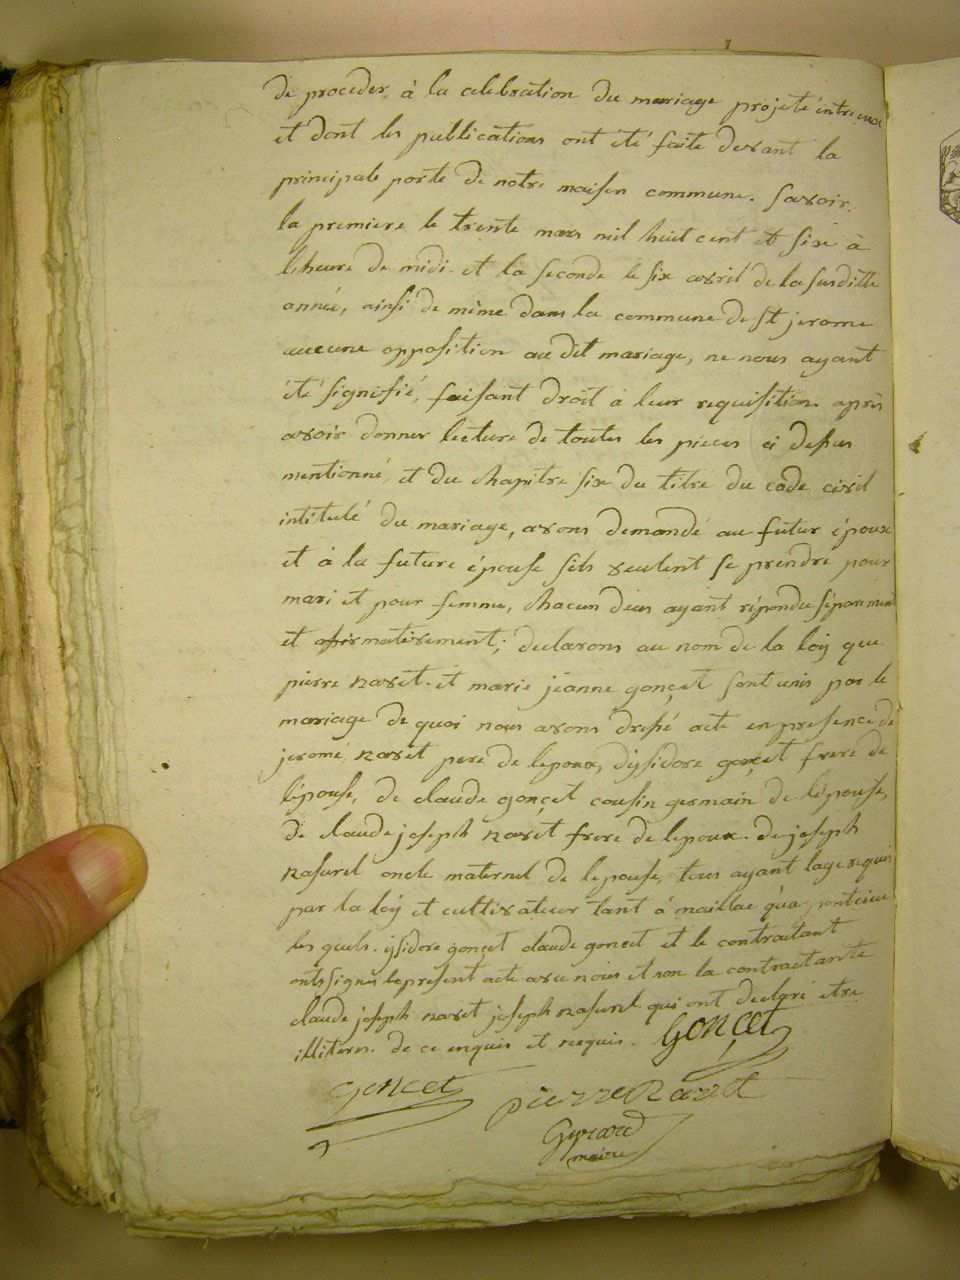 de proceder à la celebration du mariage projeté entre eux
et dont les publications ont été faite devant la
principale porte de notre maison commune. savoir.
la premiere le trente mars mil huit cent et six à
lheure de midi. et la seconde le six avril de la susditte
année, ainsi de même dans la commune de st jerome
aucune opposition au dit mariage, ne nous ayant
été signifié, faisant droit à leur requisition. après
avoir donner lecture de toutes les pieces ci dessus
mentionné, et du chapitre six du titre du code civil
intitulé du mariage, avons demandé au futur époux
et à la future épouse sils veulent se prendre pour
mari et pour femme, chacun deux ayant répondu séparement
et afirmativement; declarons au nom de la loÿ que
pierre navet. et marie jeanne gonçet sont unis par le
mariage de quoi nous avons dressé acte en presence de
jeromé navet pere de lepoux, dysidore gonçet frere de
lépouse, de claude gonçet cousin germain de lépouse,
de claude joseph navet frere de lepoux. de joseph
nasurel oncle maternel de lepouse, tous ayant lage requis
par la loÿ et cultivateur tant à maillac qua
les quels. ysidore gonçet claude goncet et le contractant
onts signés le present acte avec nous et non la contractante
claude joseph navet joseph nasurel qui ont declaré etre
illiteres. de ce enquis et requis. Gonçet
Goncet pierre Navet
Gyrard
maire